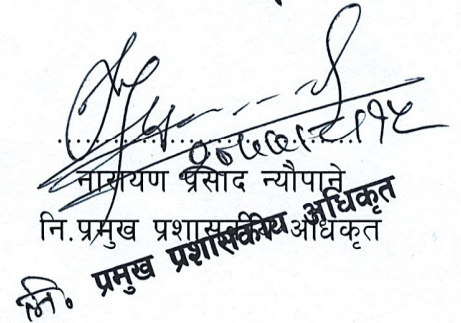 नारायण प्रसाद न्यौपाने
नि.प्रमुख प्रशासकीय अधिकृत
नि. प्रमुख प्रशासकीय अधिकृत